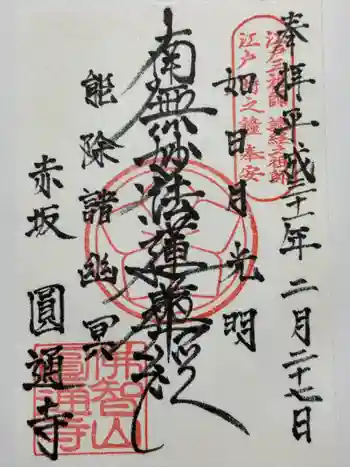 奉拝平成三十一年二月二十七日
江戸三祖師
江戸 時之鐘 奉安
如日月光明
南無妙法蓮華経
能除諸幽冥
赤坂 圓通寺
佛智山
圓通寺